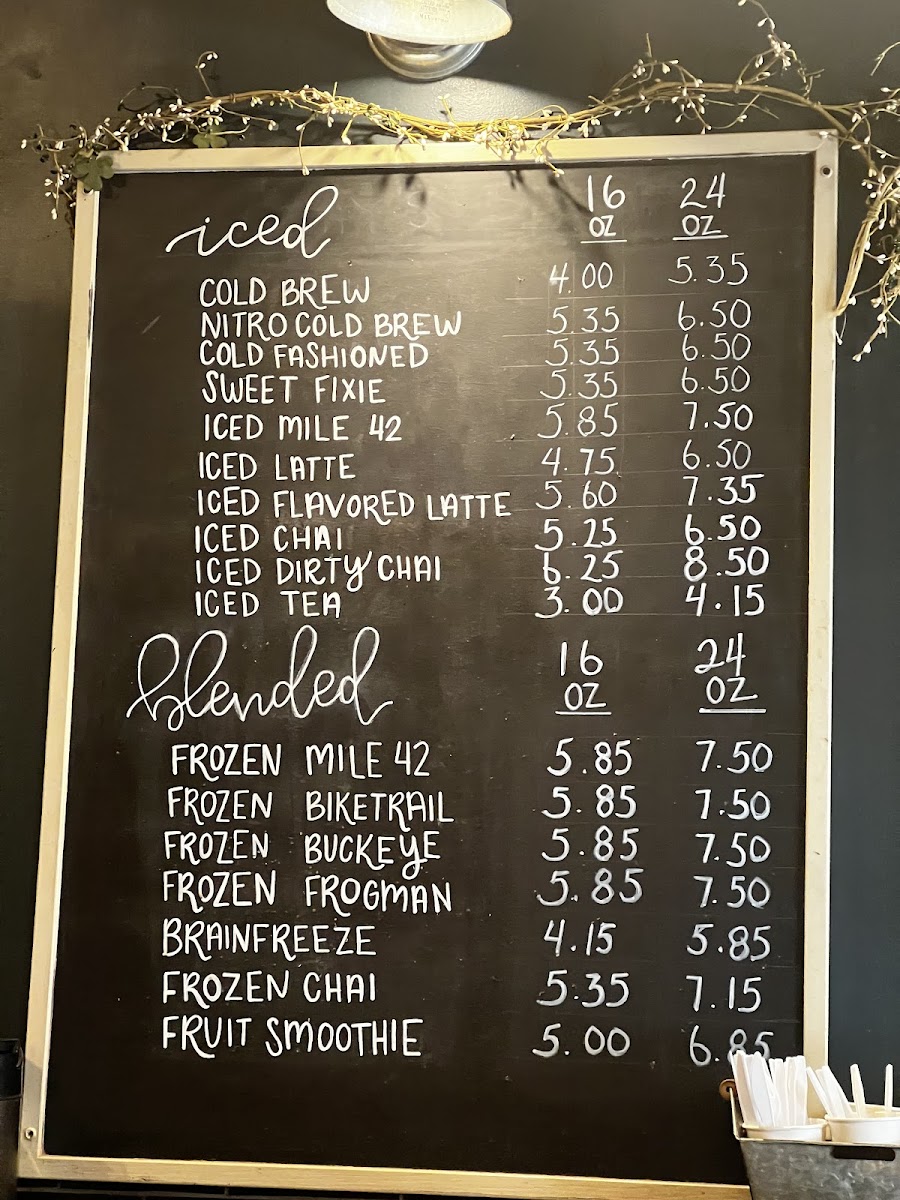 iced 16 OZ 24 OZ
COLD BREW 4.00 5.35
NITRO COLD BREW 5.35 6.50
COLD FASHIONED 5.35 6.50
SWEET FIXIE 5.35 6.50
ICED MILE 42 5.85 7.50
ICED LATTE 4.75 6.50
ICED FLAVORED LATTE 5.60 7.35
ICED CHAI 5.25 6.50
ICED DIRTY CHAI 6.25 8.50
ICED TEA 3.00 4.15
blended 16 OZ 24 OZ
FROZEN MILE 42 5.85 7.50
FROZEN BIKETRAIL 5.85 7.50
FROZEN BUCKEYE 5.85 7.50
FROZEN FROGMAN 5.85 7.50
BRAINFREEZE 4.15 5.85
FROZEN CHAI 5.35 7.15
FRUIT SMOOTHIE 5.00 6.85